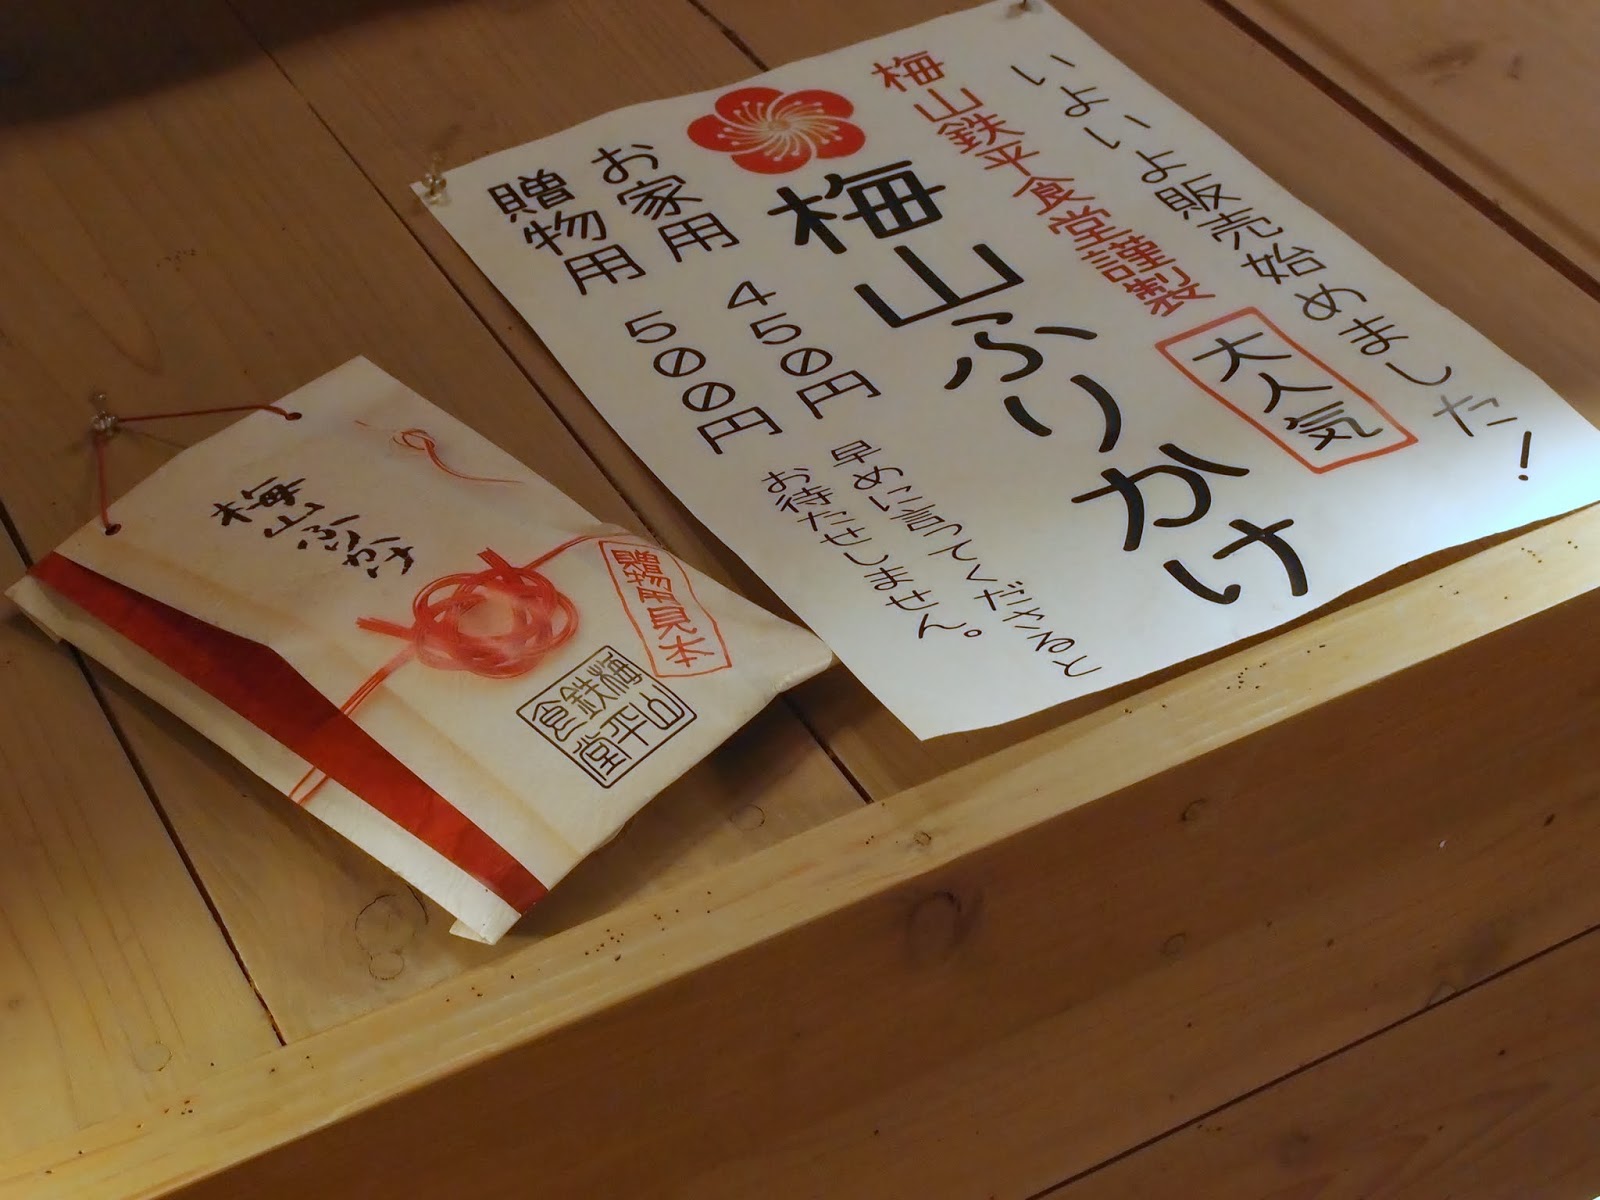 いよいよ販売始めました!
梅山鉄平食堂謹製
大人気
梅山ふりかけ
お家用 450円
贈物用 500円
早めに言ってくださると
お待たせしません。
梅山ふりかけ
贈物用見本
梅山
鉄平
食堂